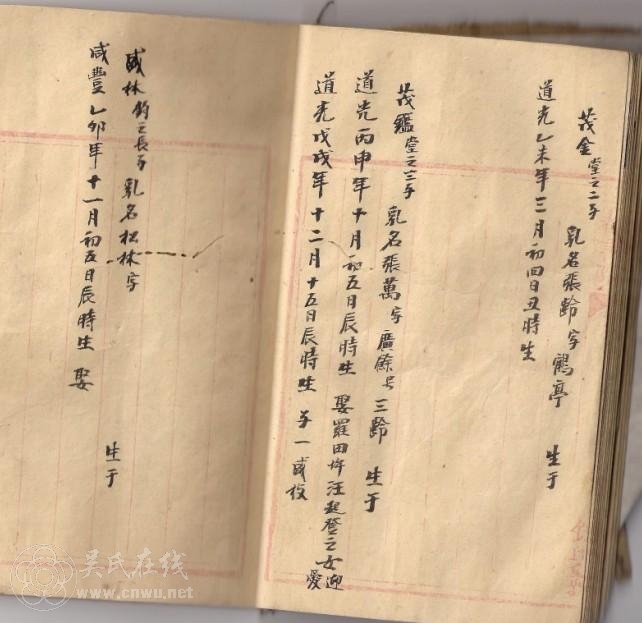 茂金堂之二子 乳名張齡字鶴亭 生于
道光乙未年三月初四日丑時生
茂鑑堂之三子 乳名張萬字廣餘号三齡 生于
道光丙申年十月初五日辰時生 娶羅田
汪起登之女迎愛
道光戊戌年十二月十五日辰時生 子一盛
盛林鈞之長子 乳名松林字 生于
咸豐乙卯年十一月初五日辰時生 娶
吴氏在线
www.cnwu.net